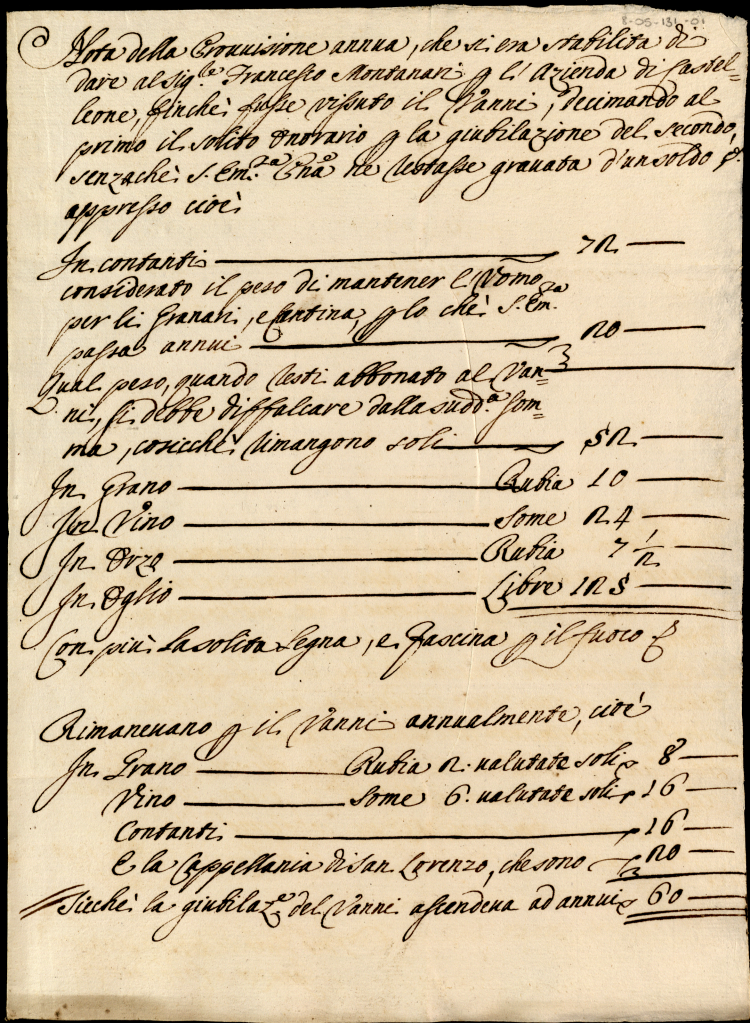 8-05-131-01
Nota della Provvisione annua, che si era stabilita di
dare al Sig.le Francesco Montanari p l'Azienda di Castel=
leone, finchè fosse vissuto il Vanni, decimando al
primo il solito Onorario p la giubilazione del secondo,
senzachè S. Em.za Pña ne restasse gravata d'un soldo &.
appresso cioè
In contanti 72
considerato il peso di mantener l'Vomo
per li Granari, e Cantina, p lo chè S. Em.za
passa annui 20
Qual peso, quando resti abbonato al Van=
ni, si debbe diffalcare dalla sudd.a som=
ma, cosicchè rimangono soli 52
In Grano Rubia 10
In Vino some 24
In Orzo Rubia 7 1/2
In Oglio Libre 125
Con più la solita Legna, e Fascina p il fuoco &
Rimanevano p il Vanni annualmente, cioè
In Grano Rubia 2. valutate soli 8
Vino some 6. valutate soli 16
Contanti 16
E la Cappellania di San Lorenzo, che sono 20
Sicchè la giubilaz.e del Vanni ascendeva ad annui 60